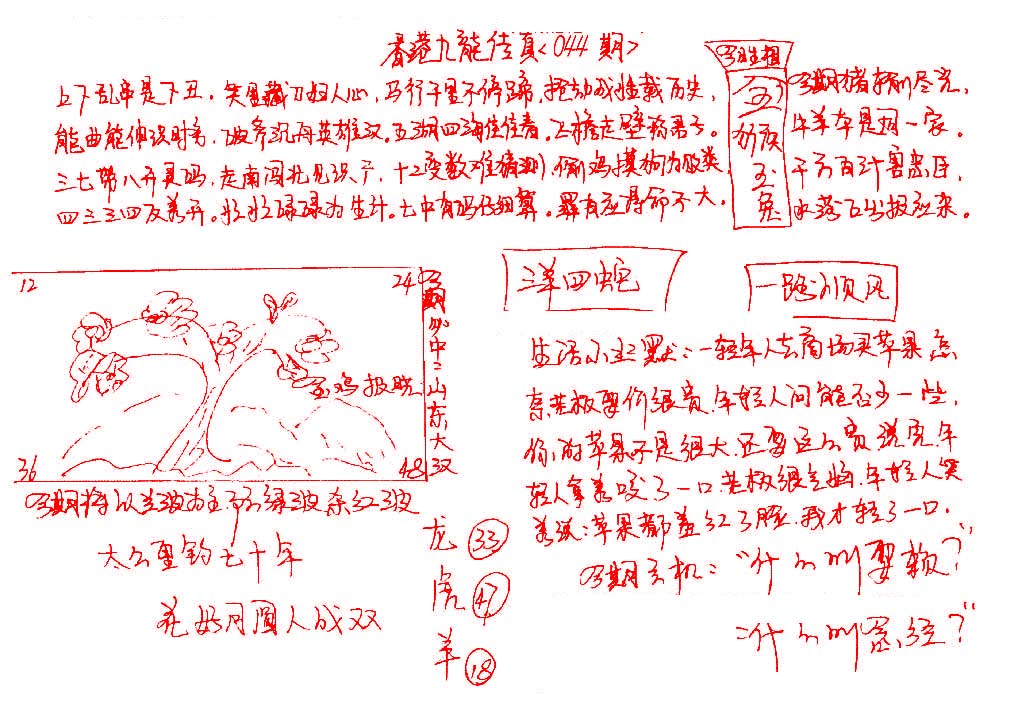 香港九龍传真<044期>
上下乱串是下丑.笑里藏刀妇人心,马行千里不停蹄,摇动战难载历史,
能曲能伸识时务,破釜沉舟英雄汉.五湖四海任往看.飞檐走壁称君子。
三七带八开灵码,走南闯北见识广,十二变数难猜测,偷鸡摸狗为败类,
四三三四及差开.忙忙碌碌为生计.七中有码仔细算.罪有应得命不大.
生肖相
五
猴
玉
兔
期猪狗尽完,
牛羊本是同一家。
千方百计害忠臣,
水落石出报应来。
三羊四蛇
一路顺风
12
24
36
48
玉鸡报晓
期必中二山东大双
期将以兰波为主 绿波杂红波
太公垂钓七十年
花好月圆人成双
龙 33
虎 47
羊 18
生活小幽默:一轻年人去商场买苹果怎
奈老板要价很贵.年轻人问能否少一些,
你的苹果不是很大.还要这么贵.说完年
轻人拿着咬了一口.老板很生气.年轻人笑
着说:苹果都羞红了脸.我才轻了一口.
期玄机:“什么叫耍赖?”
什么叫 ?”